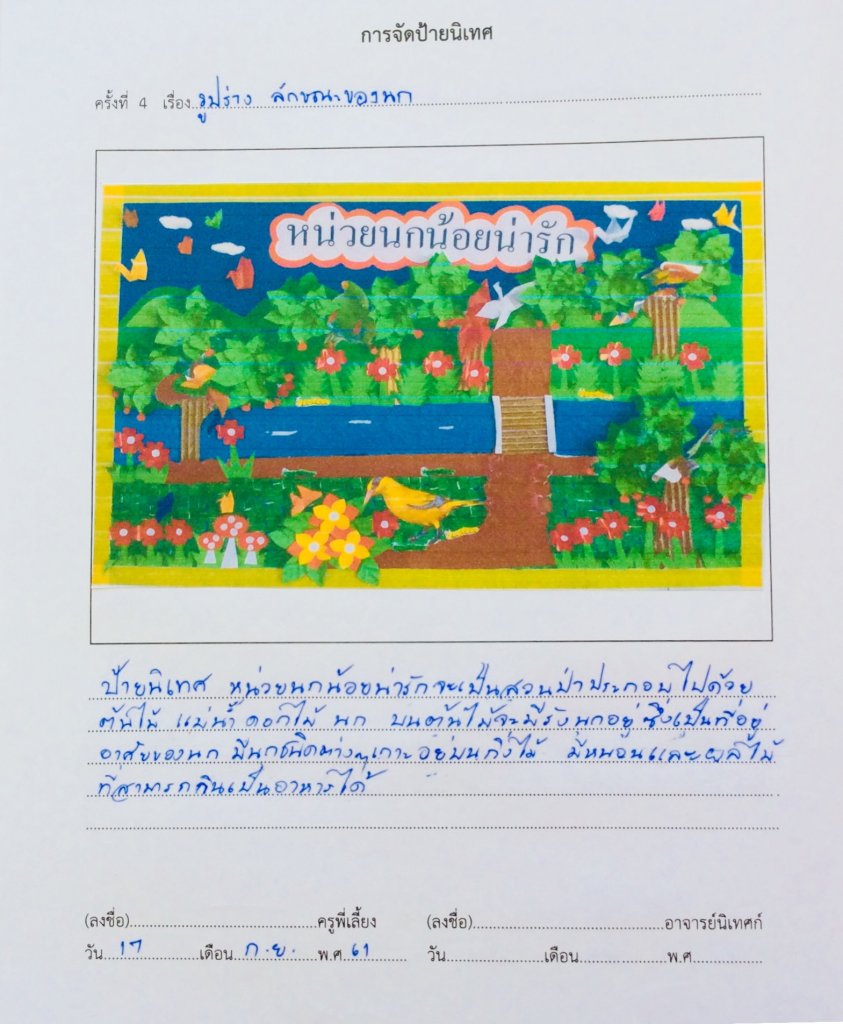 การจัดป้ายนิเทศ
ครั้งที่ 4 เรื่อง รูปร่าง ลักษณะของนก
หน่วยนกน้อยน่ารัก
ป้ายนิเทศ หน่วยนกน้อยน่ารักจะเป็นสวนป่าประกอบไปด้วย
ต้นไม้ แม่น้ำ ดอกไม้ นก บนต้นไม้จะมีรังนกอยู่ ซึ่งเป็นที่อยู่
อาศัยของนก มีนกชนิดต่างๆเกาะอยู่บนกิ่งไม้ มีหนอนและผลไม้
ที่สามารถกินเป็นอาหารได้
(ลงชื่อ)..............................ครูพี่เลี้ยง (ลงชื่อ)..............................อาจารย์นิเทศก์
วัน 17 เดือน ก.ย. พ.ศ 61 วัน..............เดือน..............พ.ศ..............